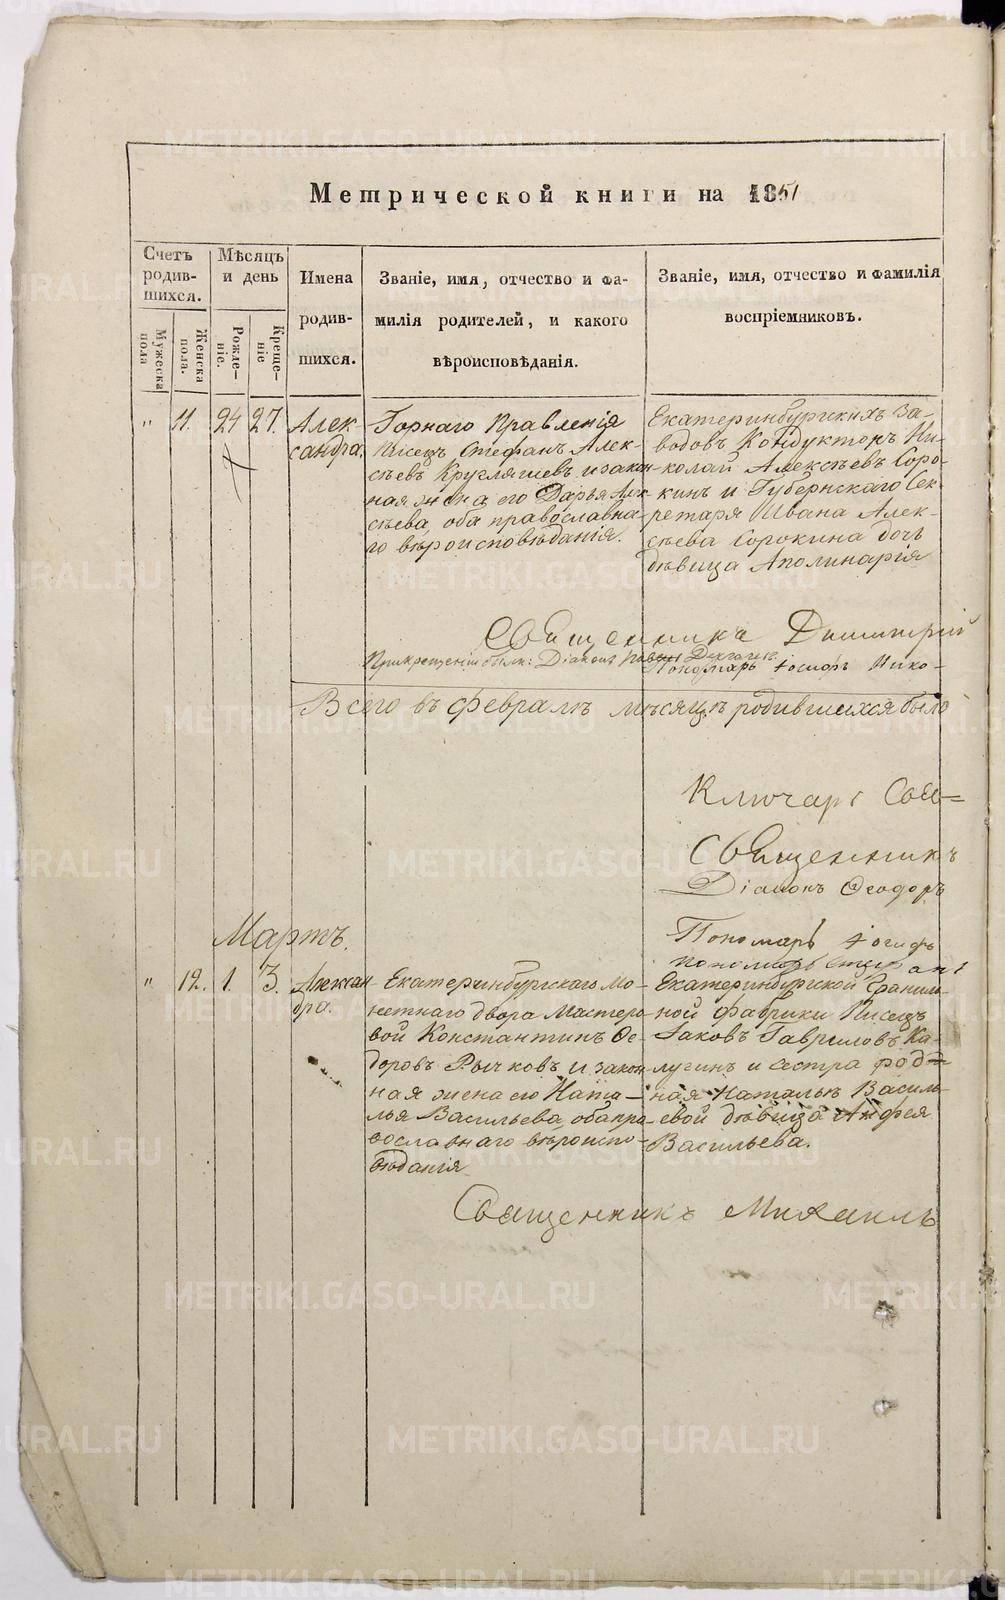 Метрической книги на 1851
Счетъ родив-шихся.
Мужеска пола
Женска пола.
Мѣсяцъ и день
Рожде-ніе.
Креще-ніе
Имена родив-шихся.
Званіе, имя, отчество и фа-
милія родителей, и какого
вѣроисповѣданія.
Званіе, имя, отчество и фамилія
воспріемниковъ.
" 11. 24 27.
Алек-
сандра.
Горнаго Правленія
Писецъ Стефанъ Алек-
сѣевъ Кругляшевъ и закон-
ная жена его Дарья Але-
ксѣева, оба православна-
го вѣроисповѣданія.
Екатеринбургскихъ За-
водовъ Кондукторъ Ни-
колай Алексѣевъ Соро-
кинъ и Губернскаго Сек-
ретаря Ивана Алек-
сѣева Сорокина дочь
дѣвица Аполинарія
Священникъ Димитрий
При крещеніи были: Діаконъ
Пономарь Іосифъ Мико-
Всего въ февралѣ мѣсяцѣ родившихся было
Ключарь Собо=
Священникъ
Діаконъ Ѳеодоръ
Пономарь Іосифъ
Пономарь Стефанъ
Мартъ.
" 12. 1. 3.
Алексан-
дра.
Екатеринбургскаго Мо-
нетнаго двора Мастеро-
вой Константинъ Ѳе-
доровъ Рычковъ и закон-
ная жена его Ната-
лья Васильева, оба пра-
вославнаго вѣроиспо-
вѣданія
Екатеринбургской Граниль-
ной фабрики Писецъ
Іаковъ Гавриловъ Ка-
лугинъ и сестра род-
ная Натальѣ Василь-
евой дѣвица Анфея
Васильева.
Священникъ Михаилъ
METRIKI.GASO-URAL.RU